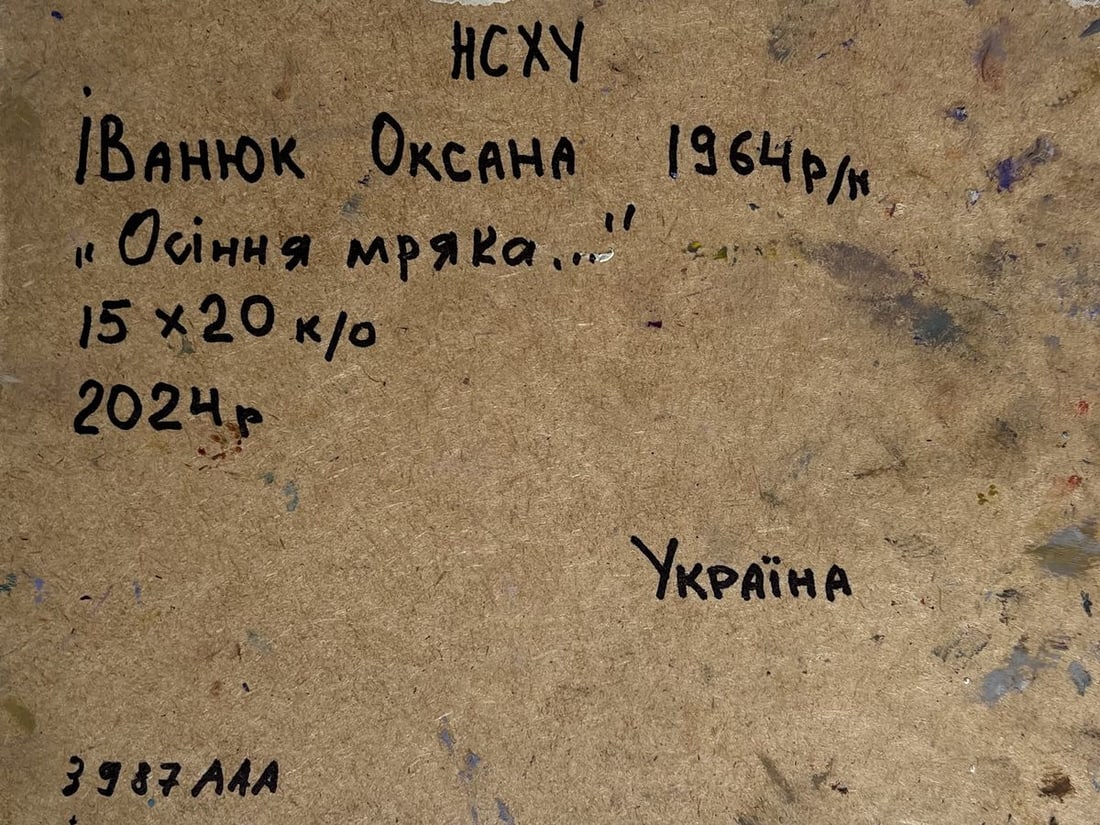 НСХУ
Іванюк Оксана 1964р/н
„Осіння мряка..."
15 х 20 к/о
2024р
Україна
3987 ААА